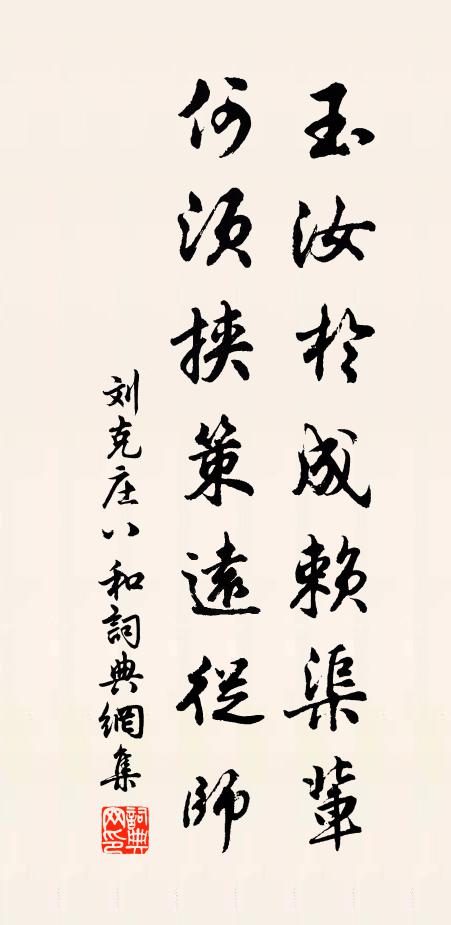 玉汝於成赖渠輩
何須挾策遠從師
刘克庄八和詞典網集
詞典
网印